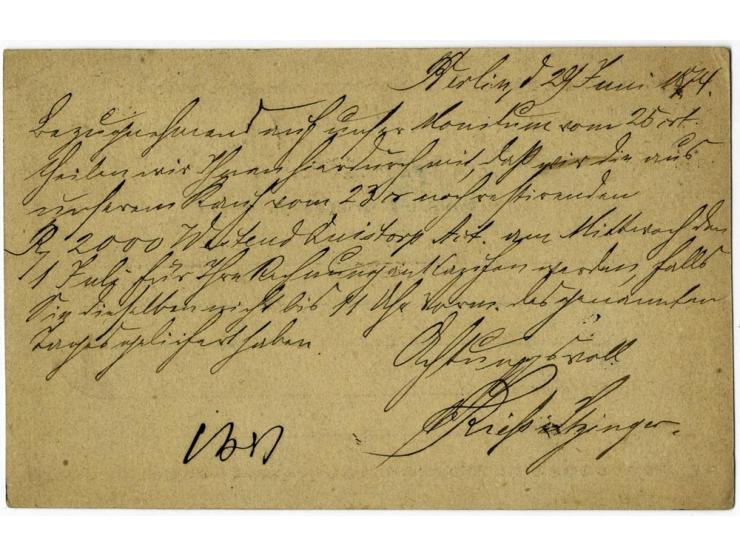 Berlin, d 29 Juni 1874.
Bezugnehmend auf unser Monitum vom 25 crt.
theilen wir Ihnen hierdurch mit, daß wir die aus
unserem Kauf vom 23 cr noch restirenden
2000 Westend Quistorp Act. am Mittwoch den
1 July für Ihre Rechnung ankaufen werden, falls
Sie dieselben nicht bis 11 Uhr Vorm. des genannten
Tages geliefert haben
Achtungsvoll
Rieß &